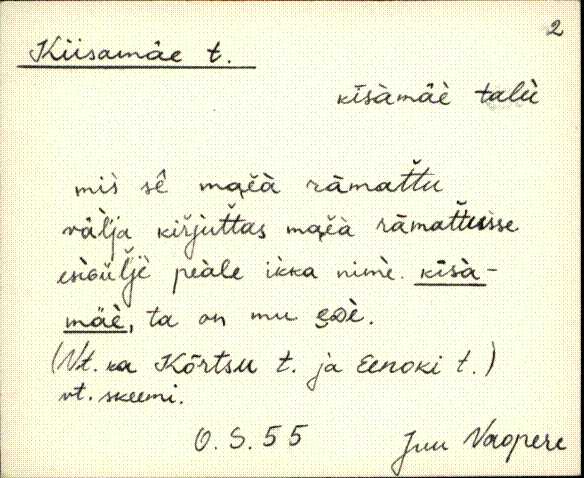 2
Kiisamäe t.
kīsàmäè talù
mis̀ sê maɛ̯à rāmat̆tu
väl̆ja kir̆jut̆tas maɛ̯à rāmat̆tusse
esìsül̆jè peàle ikka nimè. kīsà-
mäè, ta on mu
(Vt. ka Kõrtsu t. ja Eenoki t.)
vt. skeemi.
O. S. 55
Juu Vaopere